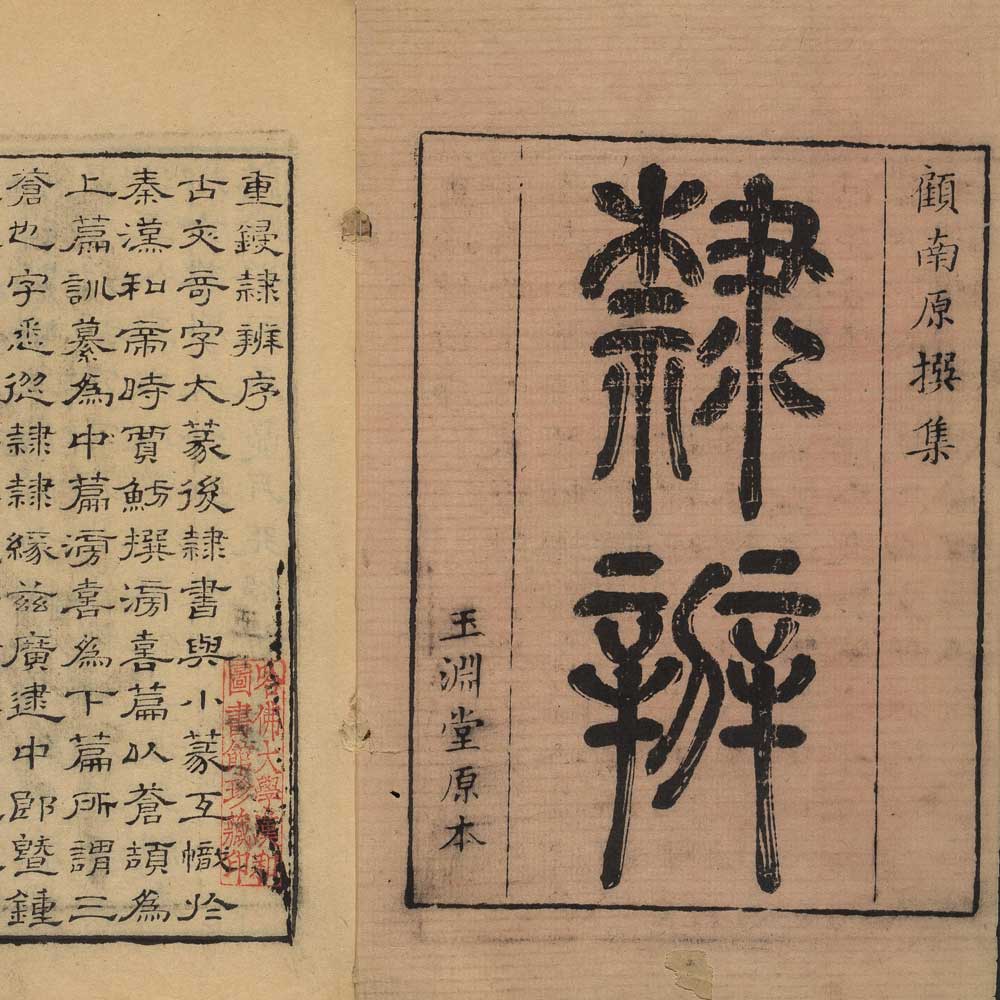 顧南原撰集
隸辨
玉淵堂原本
重錄隸辨序
古文奇字大篆後隸書與小篆互幟於
秦漢和帝時賈魴撰滂喜篇以蒼頡為
上篇訓纂為中篇滂喜為下篇所謂三
蒼也字悉從隸隸緣茲廣逮中郎暨鍾
哈佛大學漢和
圖書館珍藏印